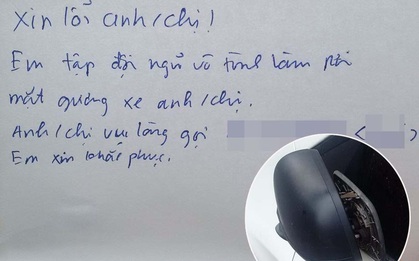 Xin lỗi anh/chị!
Em tập đội ngũ vô tình làm rơi
mắt gương xe anh/chị.
Anh/chị vui lòng gọi ( )
Em xin khắc phục.